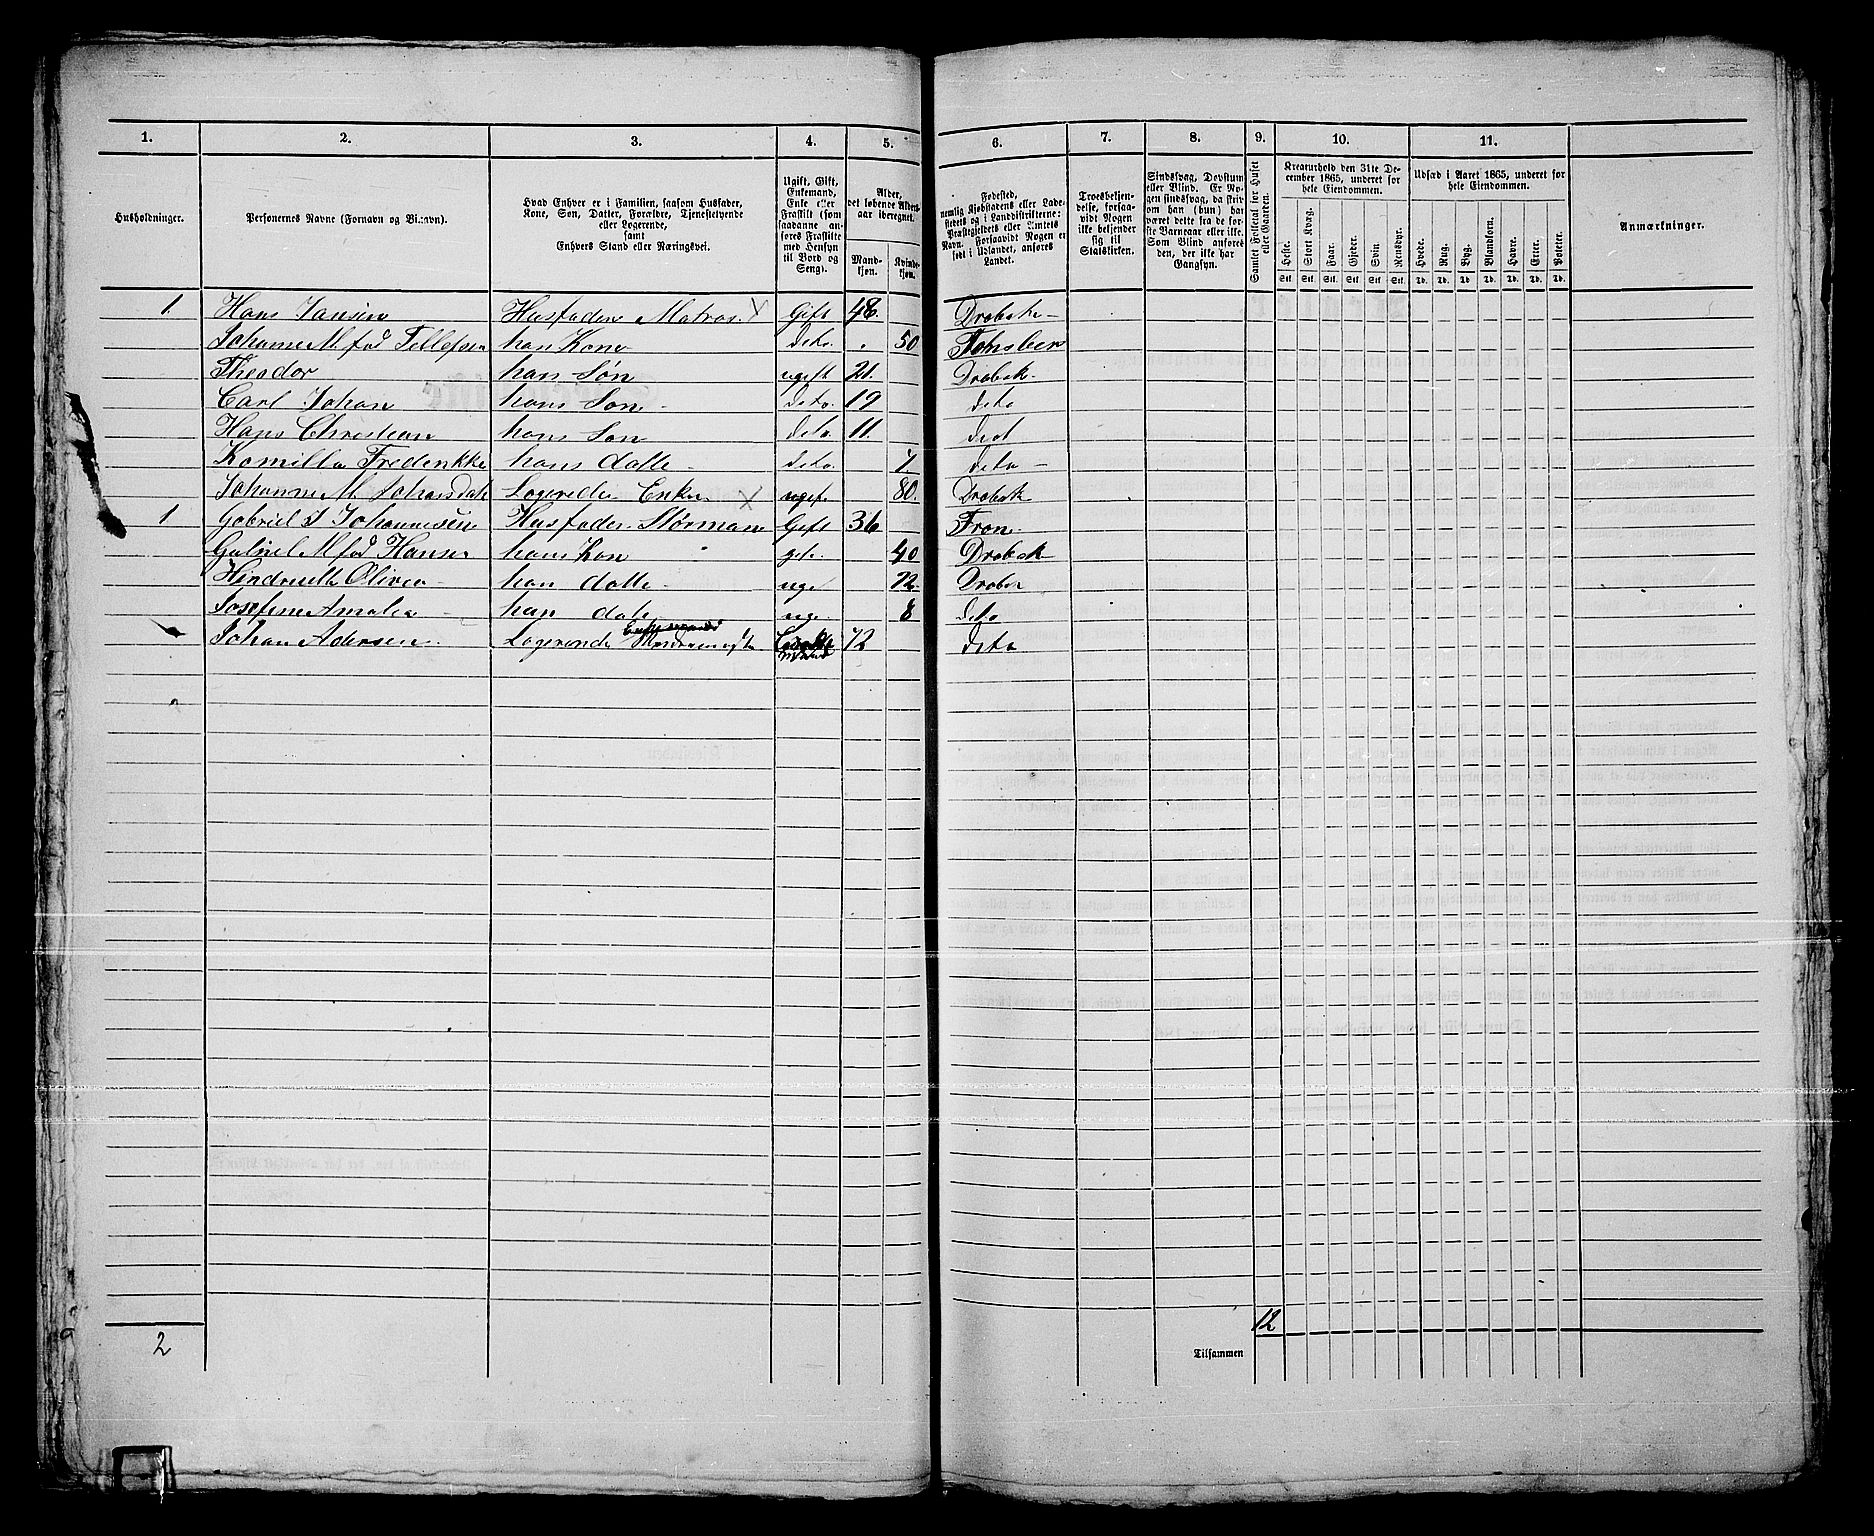 1. 2. 3. 4. 5. 6. 7. 8. 9. 10. 11.
Husholdninger.
Personernes Navne (Fornavn og Tilnavn).
Hvad Enhver er i Familien, saasom Husfader,
Kone, Søn, Datter, Forældre, Tjenestetyende
eller Logerende,
samt
Enhvers Stand eller Næringsvei.
Ugift, Gift,
Enkemand,
Enke eller
Fraskilt (som
saadanne an-
føres Fraskilte
med Hensyn
til Bord og
Seng).
Alder,
det løbende Alders-
aar iberegnet.
Mand-
kjøn.
Kvinde-
kjøn.
Fødested,
nemlig Kjøbstadens eller Lade-
stedets og i Landdistrikterne:
Præstegjeldets eller Amtets
Navn. Forsaavidt Nogen er
født i Udlandet, anføres
Landet.
Troesbekjen-
delse, forsaa-
vidt Nogen
ikke bekjender
sig til
Statskirken.
Sindssvag, Døvstum
eller Blind. Er No-
gen sindssvag, da skriv
om han (hun) har
været dette fra de før-
ste Barneaar eller ikke.
Som Blind anføres
den, der ikke har
Gangsyn.
Samlet Folketal for Huset
eller Gaarden.
Kreaturhold den 31te De-
cember 1865, underet for
hele Eiendommen.
Heste. Stort Kvæg. Faar. Gjeder. Svin. Rensdyr.
Stk. Stk. Stk. Stk. Stk. Stk.
Udsæd i Aaret 1865, underet for
hele Eiendommen.
Hvede. Rug. Byg. Blandkorn. Havre. Erter. Poteter.
Td. Td. Td. Td. Td. Td. Td.
Anmærkninger.
1 Hans Jansen Husfader Matros X Gift 48. Drobak
Johanne M fød Tellefsen han Kone deto. 50 Tønsber
Theodor han Søn ugift 21. Drobak
Carl Johan hans Søn deto. 19 deto
Hans Christian hans Søn deto. 11. deot
Kamilla Fredrikke hans datte deto. 7 deto
Johanne M Johansdat Logerede Enke X ugef. 80. Drobak
1 Gabriel J Johannesen Husfader Størman Gift 36 Fron
Gabriel M fød Hansen hans Kon gift. 40 Drobak
Hindrette Olivea han datte uge 12. Drobak
Josefine Amalia han date uge 8 deto
Johan Adersen Logerende Enkemand 72 deto
2
12
Tilsammen